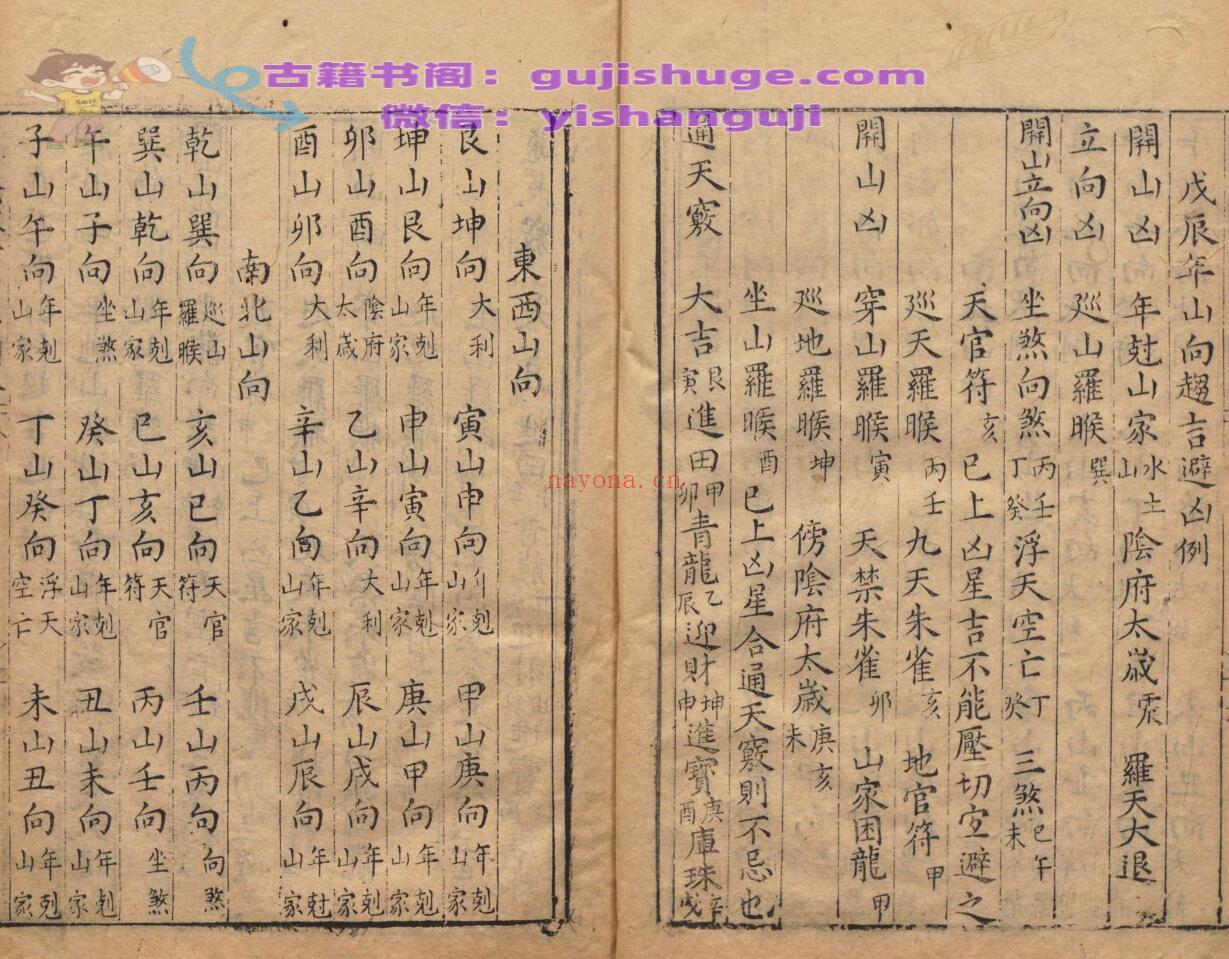 古籍书阁：gujishuge.com
微信：yishanguji
nayona.cn
戊辰年山向趨吉避凶例
開山凶 年尅山家 水土山 陰府太歲 羅天大退
立向凶 巡山羅睺 巽
開山立向凶 坐煞向煞 丙壬丁癸 浮天空亡 丁癸 三煞 巳午未
天官符 亥 已上凶星吉不能壓切宜避之
巡天羅睺 丙壬 九天朱雀 亥 地官符 甲
開山凶 穿山羅睺 寅 天禁朱雀 卯 山家困龍 甲
巡地羅睺 坤 傍陰府太歲 庚亥未
坐山羅睺 酉 已上凶星合通天竅則不忌也
通天竅 大吉 艮寅 進田 甲卯 青龍 乙辰 迎財 坤申 進寶 庚酉 庫珠 辛戌
東西山向
艮山坤向 大利 寅山申向 年剋山家 甲山庚向 年剋山家
坤山艮向 年剋山家 申山寅向 年剋山家 庚山甲向 年剋山家
卯山酉向 陰府太歲 乙山辛向 大利 辰山戌向 年剋山家
酉山卯向 大利 辛山乙向 年剋山家 戌山辰向 年尅山家
南北山向
乾山巽向 巡山羅睺 亥山巳向 天官符 壬山丙向 向煞
巽山乾向 年剋山家 巳山亥向 天官符 丙山壬向 坐煞
午山子向 坐煞 癸山丁向 年剋山家 丑山未向 年剋山家
子山午向 年剋山家 丁山癸向 浮天空亡 未山丑向 年剋山家